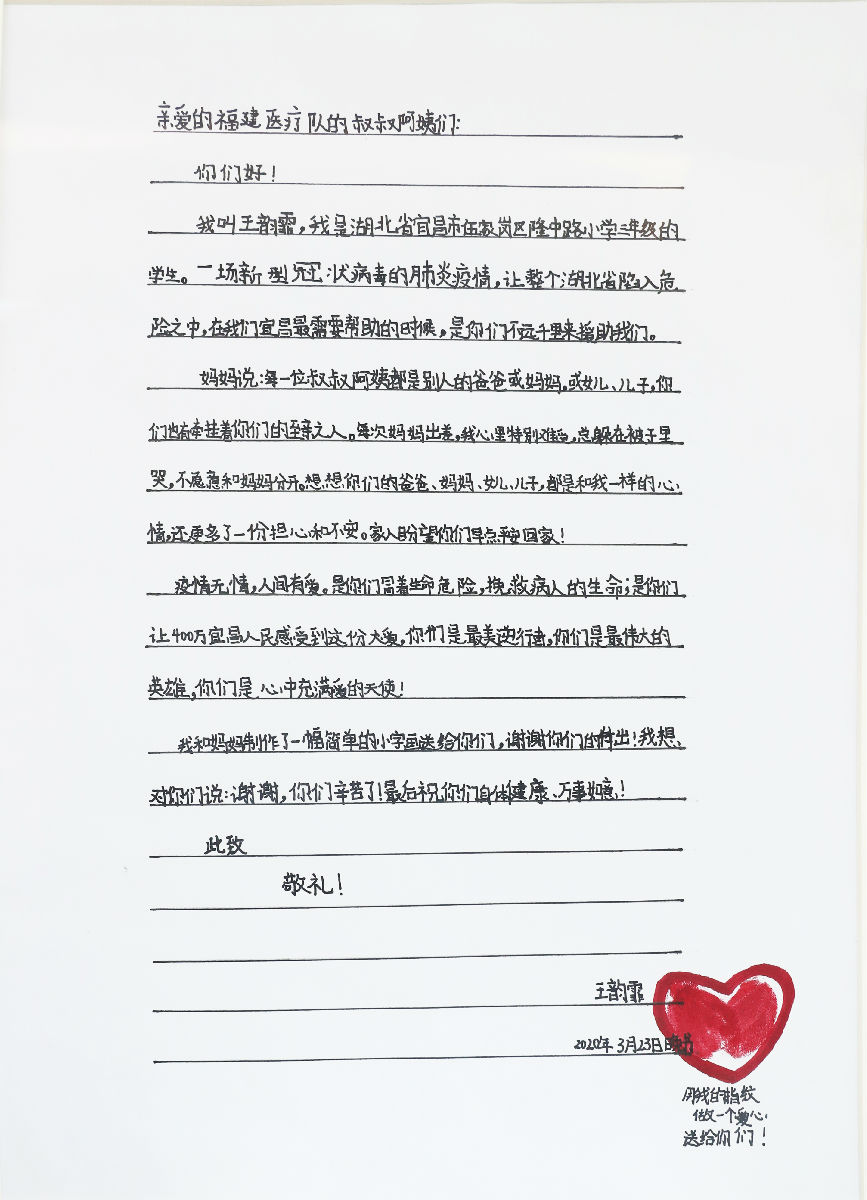 亲爱的福建医疗队的叔叔阿姨们:
你们好!
我叫王韵霏,我是湖北省宜昌市伍家岗区隆中路小学三年级的
学生。一场新型冠状病毒的肺炎疫情,让整个湖北省陷入危
险之中,在我们宜昌最需要帮助的时候,是你们不远千里来援助我们。
妈妈说:每一位叔叔阿姨都是别人的爸爸或妈妈,或女儿、儿子,你
们也有牵挂着你们的至亲之人。每次妈妈出差,我心里特别难受,总躲在被子里
哭,不愿意和妈妈分开。想想你们的爸爸、妈妈、女儿、儿子,都是和我一样的心
情,还更多了一份担心和不安。家人盼望你们早点平安回家!
疫情无情,人间有爱。是你们冒着生命危险,挽救病人的生命;是你们
让400万宜昌人民感受到这份大爱,你们是最美逆行者,你们是最伟大的
英雄,你们是心中充满爱的天使!
我和妈妈制作了一幅简单的小字画送给你们,谢谢你们的付出!我想
对你们说:谢谢,你们辛苦了!最后祝你们身体健康、万事如意!
此致
敬礼!
王韵霏
2020年3月23日晚书
用我的指纹
做一个爱心
送给你们!